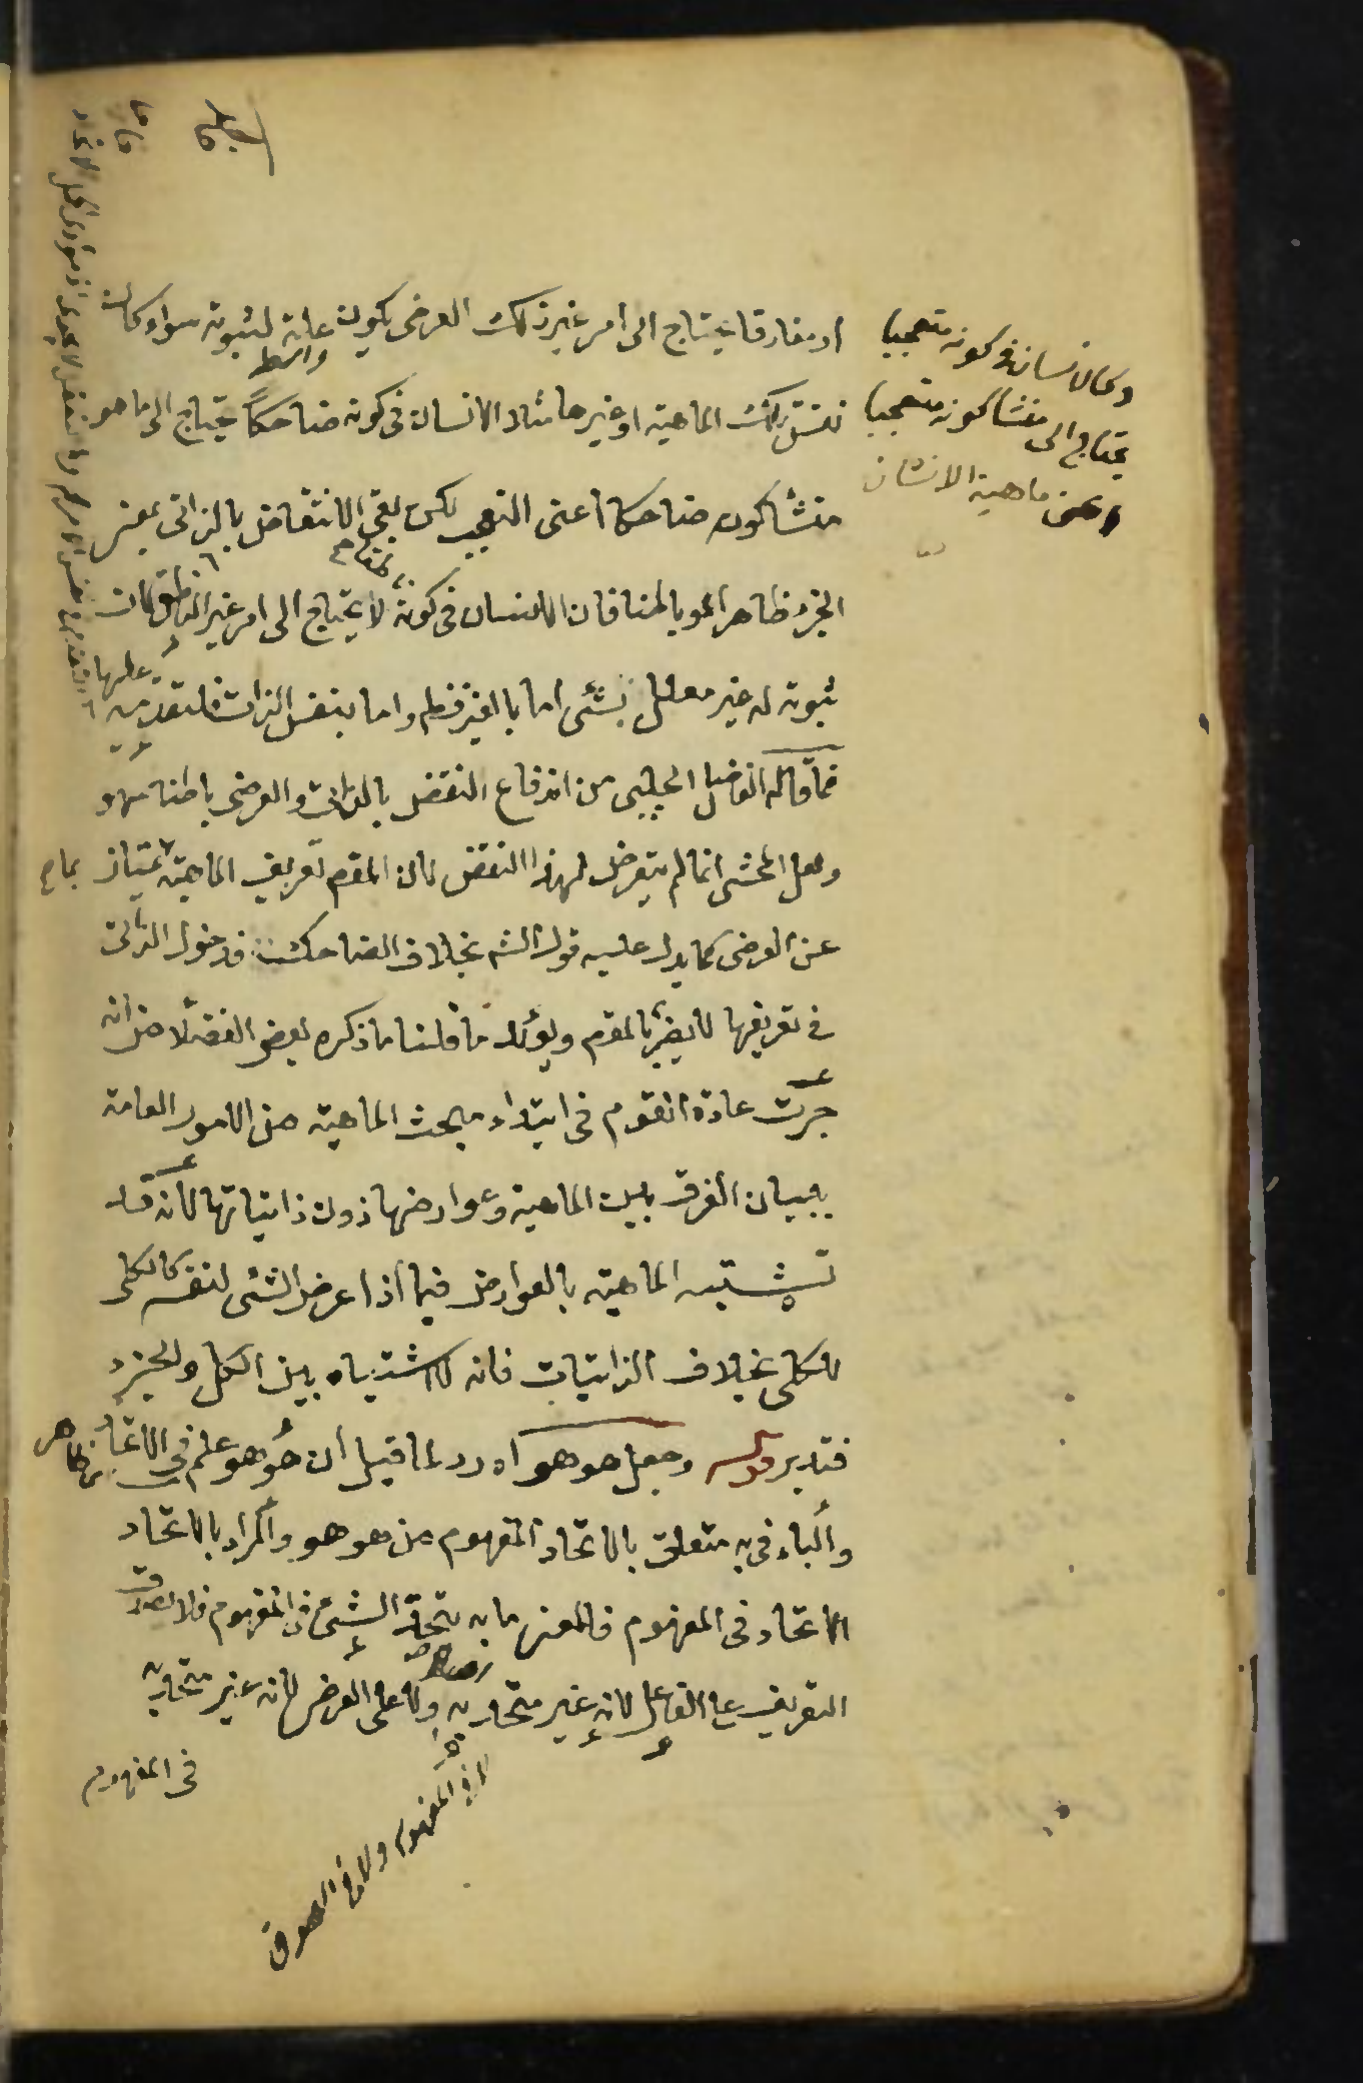 او مفارقا يحتاج الى امر غير ذلك العرضى يكون علة لثبوته سواء كان
واسطة
نفس تلك الماهية او غيرها مثلا الانسان فى كونه ضاحكاً يحتاج الى ما هو
منشأ كونه ضاحكا اعنى التعجب لكن بقى الانتقاض بالذاتى بمعنى
الجزء ظاهرا لمو بالهنا فان الانسان فى كونه لا يحتاج الى امر غير الناطق لان
ثبوته له غير معلل بشئ اما بالغير فظم واما بنفس الذات فلتقدمه
عليها
فما قاله الفاضل الجلبى من اندفاع النقض بالذاتى والعرضى باطنا سهو
ولعل المحشى انما لم يتعرض لهذا النقض لان المقم تعريف الماهية لتمتاز
عن العرضى كما يدل عليه قول الشم بخلاف الضاحك فدخول الذاتى
فى تعريفها لا يضر بالمقم ويؤيد ما قلنا ما ذكره بعض الفضلا من انه
جرت عادة القوم فى ابتداء مبحث الماهية من الامور العامة
ببيان الفرق بين الماهية وعوارضها دون ذاتياتها لانه قد
تشتبه الماهية بالعوارض فيما اذا عرض الشئ لنفسه كالكلى
للكلى بخلاف الذاتيات فانه لا اشتباه بين الكل والجزء
فتدبر قوله وجعل هو هو اه رد لما قيل ان هو هو علم فى الاتحاد
والباء فى به متعلق بالاتحاد المفهوم من هو هو والمراد بالاتحاد
الاتحاد فى المفهوم فالمعنى ما به يتحد الشئ فى المفهوم فلا يصدق
التعريف على الفاعل لانه غير متحد به ولا على العرضى لانه غير متحد به
فى المفهوم
لا فى المفهوم ولا فى الصدق
وكالانسان فى كونه متعجبا
يحتاج الى منشا كونه متعجبا
وعن ماهية الانسان